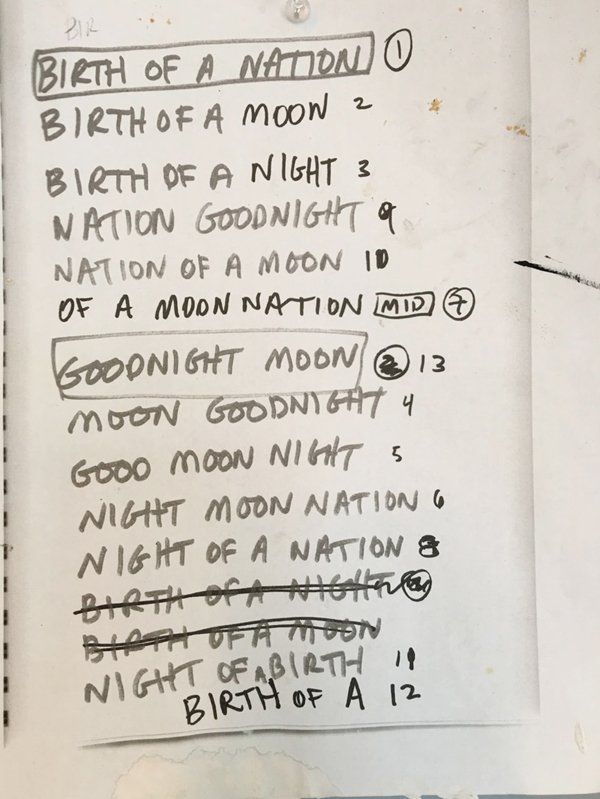 BIR
BIRTH OF A NATION 1
BIRTH OF A MOON 2
BIRTH OF A NIGHT 3
NATION GOODNIGHT 9
NATION OF A MOON 10
OF A MOON NATION MID 7
GOODNIGHT MOON 13
MOON GOODNIGHT 4
GOOD MOON NIGHT 5
NIGHT MOON NATION 6
NIGHT OF A NATION 8
BIRTH OF A NIGHT
BIRTH OF A MOON
NIGHT OF A BIRTH 11
BIRTH OF A 12